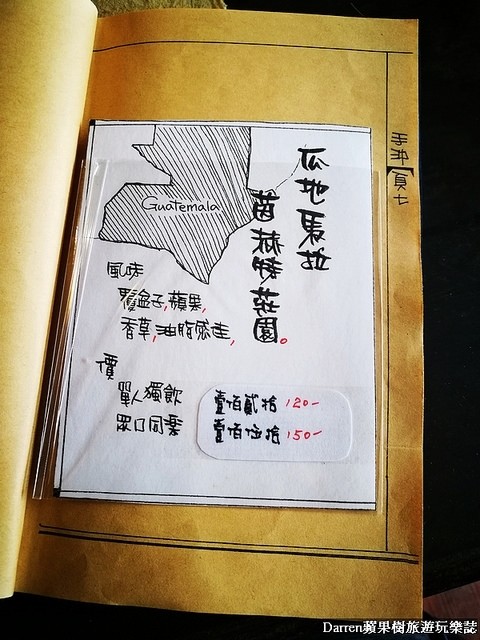 瓜地馬拉
茵赫特莊園。
Guatemala
風味
覆盆子,蘋果,
香草,油脂感佳,
價
單人獨飲
壹佰貳拾 120-
眾口同棄
壹佰伍拾 150-
手沖 頁七
Darren蘋果樹旅遊玩樂誌